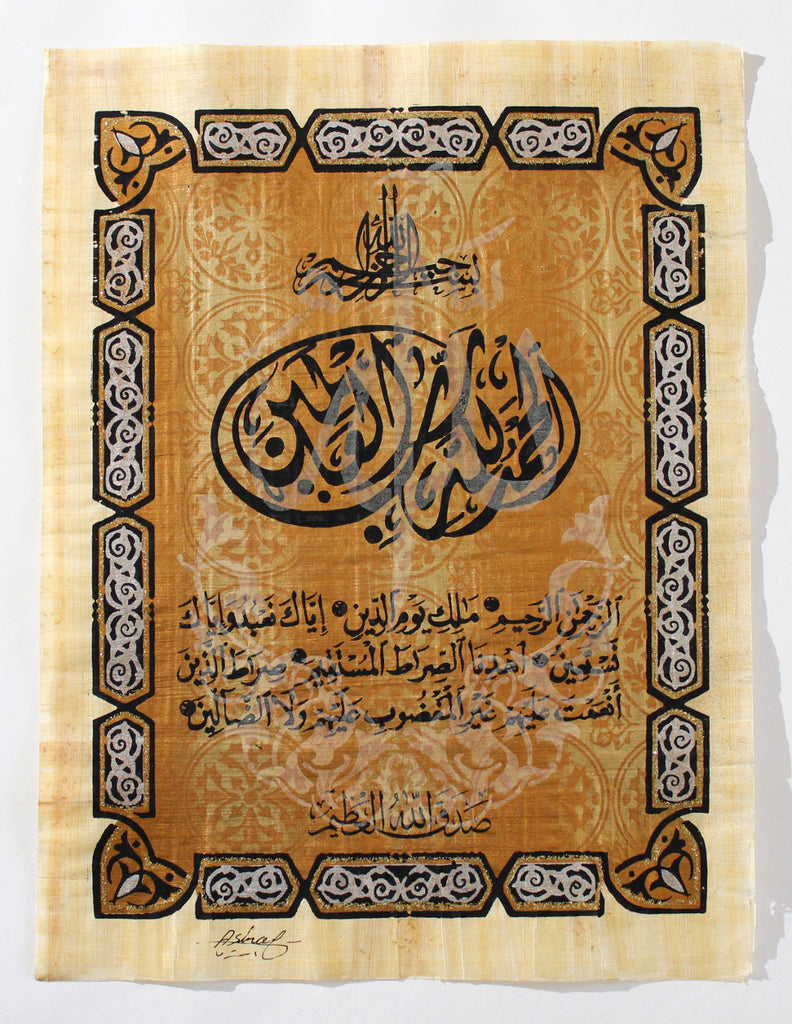 بسم الله الرحمن الرحيم
الحمد لله رب العالمين
الرَّحْمَٰنِ الرَّحِيمِ • مَالِكِ يَوْمِ الدِّينِ • إِيَّاكَ نَعْبُدُ وَإِيَّاكَ
نَسْتَعِينُ • اهْدِنَا الصِّرَاطَ الْمُسْتَقِيمَ • صِرَاطَ الَّذِينَ
أَنْعَمْتَ عَلَيْهِمْ غَيْرِ الْمَغْضُوبِ عَلَيْهِمْ وَلَا الضَّالِّينَ •
صَدَقَ اللهُ العَظِيمُ
Ashraf